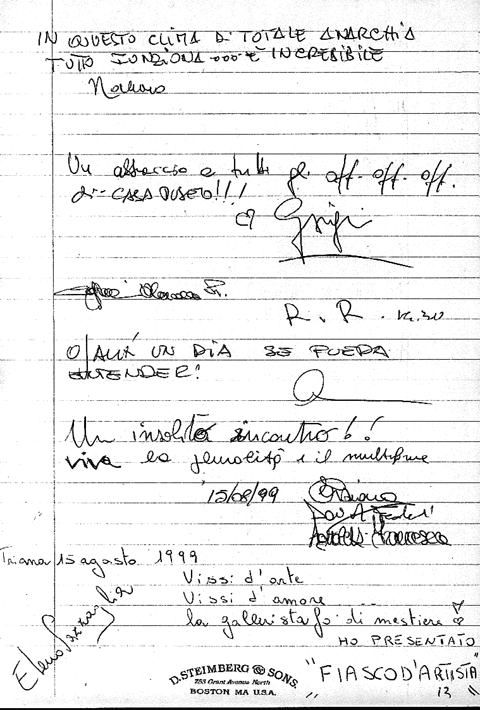 IN QUESTO CLIMA DI TOTALE ANARCHIA
TUTTO FUNZIONA ... È INCREDIBILE
Un abbraccio a tutti gli off. off. off.
di CASA
R. R.
OJALÀ UN DIA SE PUEDA
ENTENDER!
Un insolito incontro !!
viva la e il multiforme
15/08/99
Triana 15 agosto 1999
Vissi d'arte
Vissi d'amore ...
la gallerista fo di mestiere
HO PRESENTATO
"FIASCO D'ARTISTA"
Elena
D. STEIMBERG & SONS.
753 Grant Avenue North
BOSTON MA U.S.A.
13